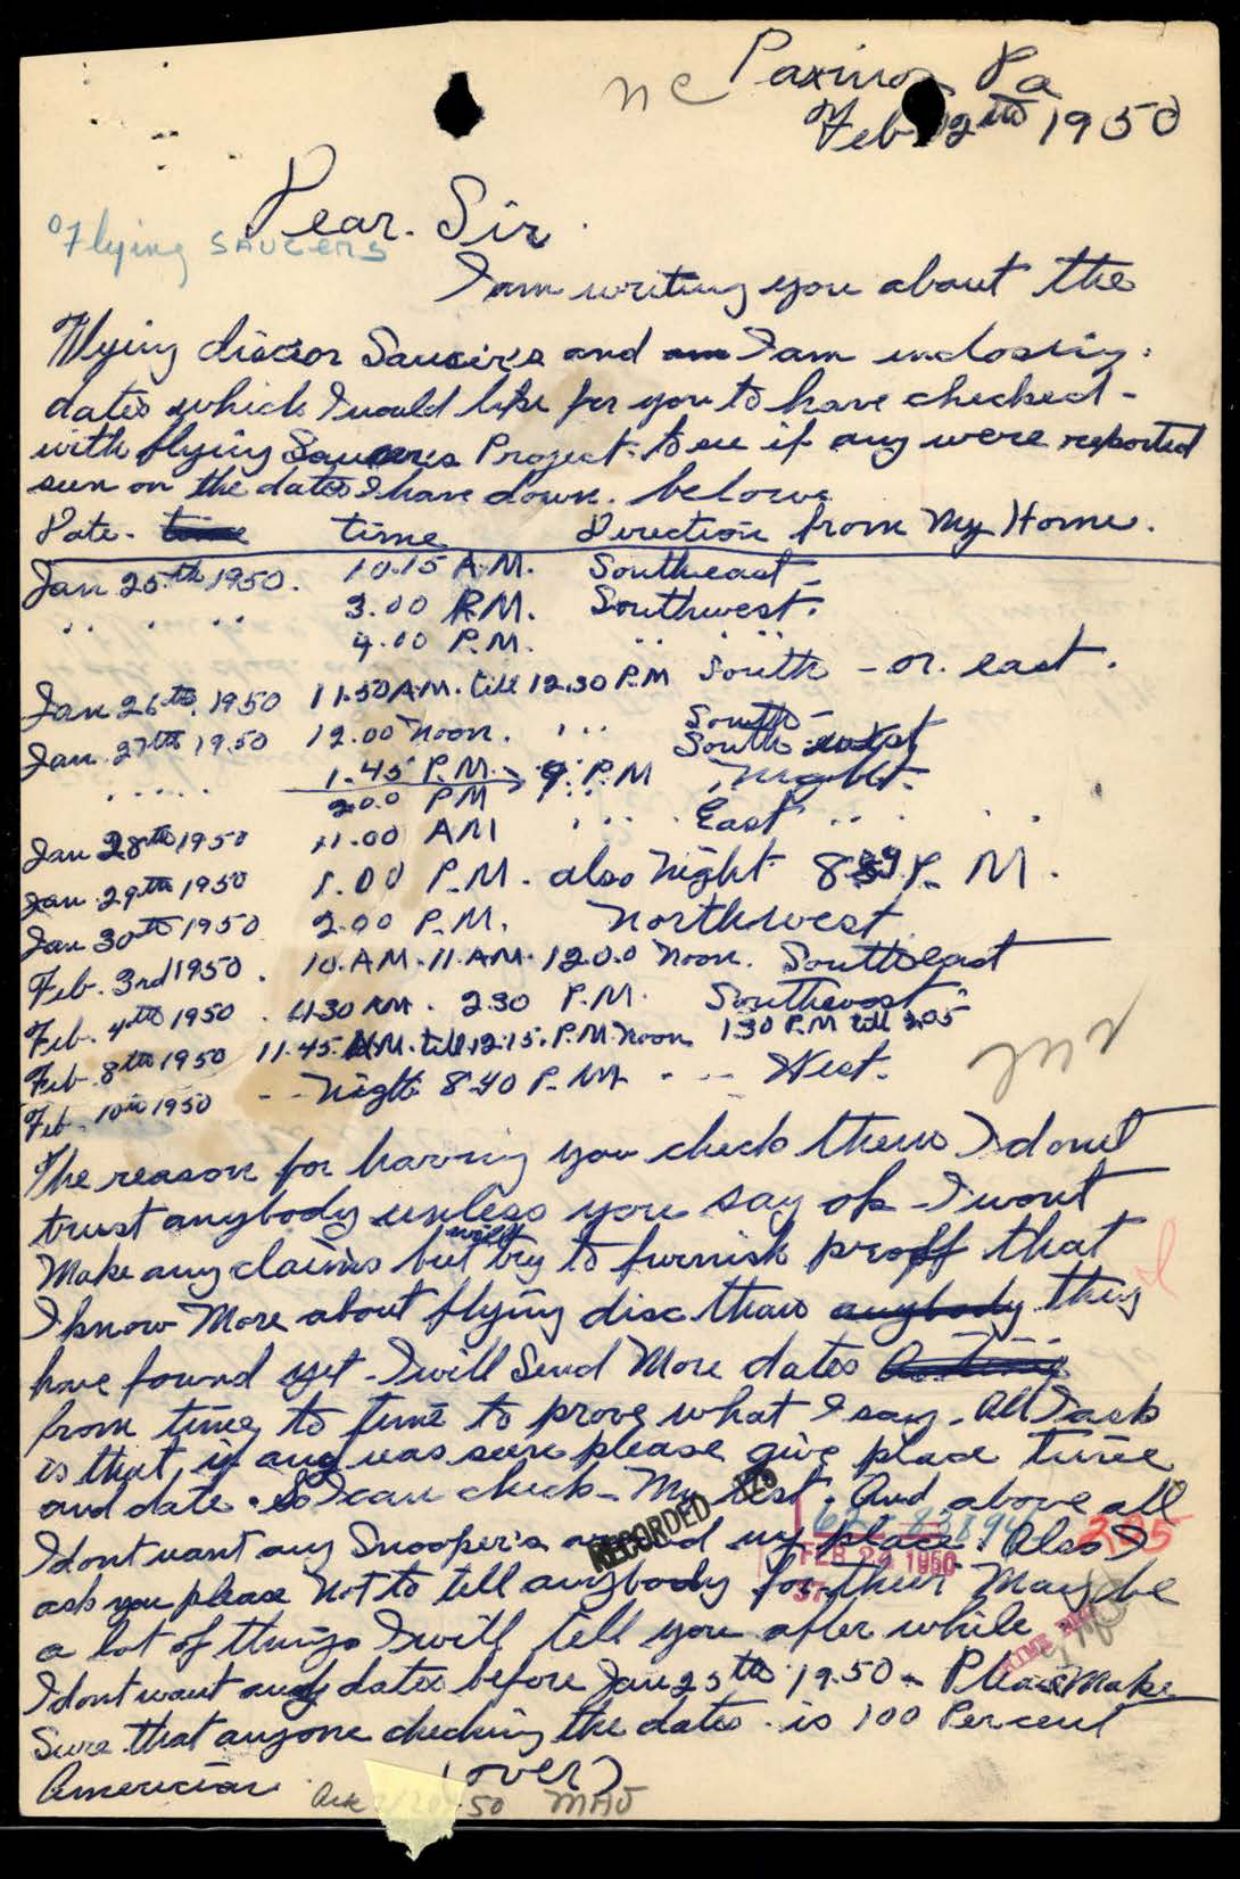 nc Paxinos Pa
Feb 12th 1950
Dear. Sir
Flying SAUCERS
I am writing you about the
Flying disc or Saucer's and am I am inclosing
dates which I would like for you to have checked -
with flying Saucers Project. to see if any were reported
seen on the dates I have down. below
Date. time time Direction from My Home.
Jan 25th 1950. 10.15 A.M. Southeast -
.. . .. 3.00 P.M. Southwest.
4.00 P.M. .. . ..
Jan 26th. 1950 11.30 A.M. till 12.30 P.M South - or. east.
Jan. 27th 1950 12.00 Noon. . .. South -
South
..... 1.45 P.M. 9. P.M Night.
2.00 PM
Jan 28th 1950 11.00 AM . .. . East .. . .
Jan. 29th 1950 1.00 P.M. also Night 8 P. M.
Jan 30th 1950 2.00 P.M. Northwest
Feb. 3rd 1950. 10. A.M. 11. A.M. 12.00 Noon. Southeast
Feb. 4th 1950. 2.30 P.M.
Feb. 8th 1950 11.45. A.M. till 12.15. P.M. Noon 1.30 P.M till 2.05
Feb. 10th 1950 - - Night 8.40 P.M. - - West.
The reason for having you check them I dont
trust anybody unless you say ok - I wont
Make any claims but will try to furnish proff that
I know More about flying disc than anybody they
have found yet - I will Send More dates
from time to time to prove what I say. All I ask
is that if any was seen please give place time
and date. So I can check - My list. And above all
RECORDED - 126
62-83894-305
I dont want any Snooper's around my place. Also I
FEB 24 1950
ask you please Not to tell anybody for then Maybe
37
a lot of things I will tell you after while
I dont want any dates before Jan 25th 1950 - Please Make
Sure that anyone checking the dates. is 100 Percent
American. (over)
Ack 50 MAJ